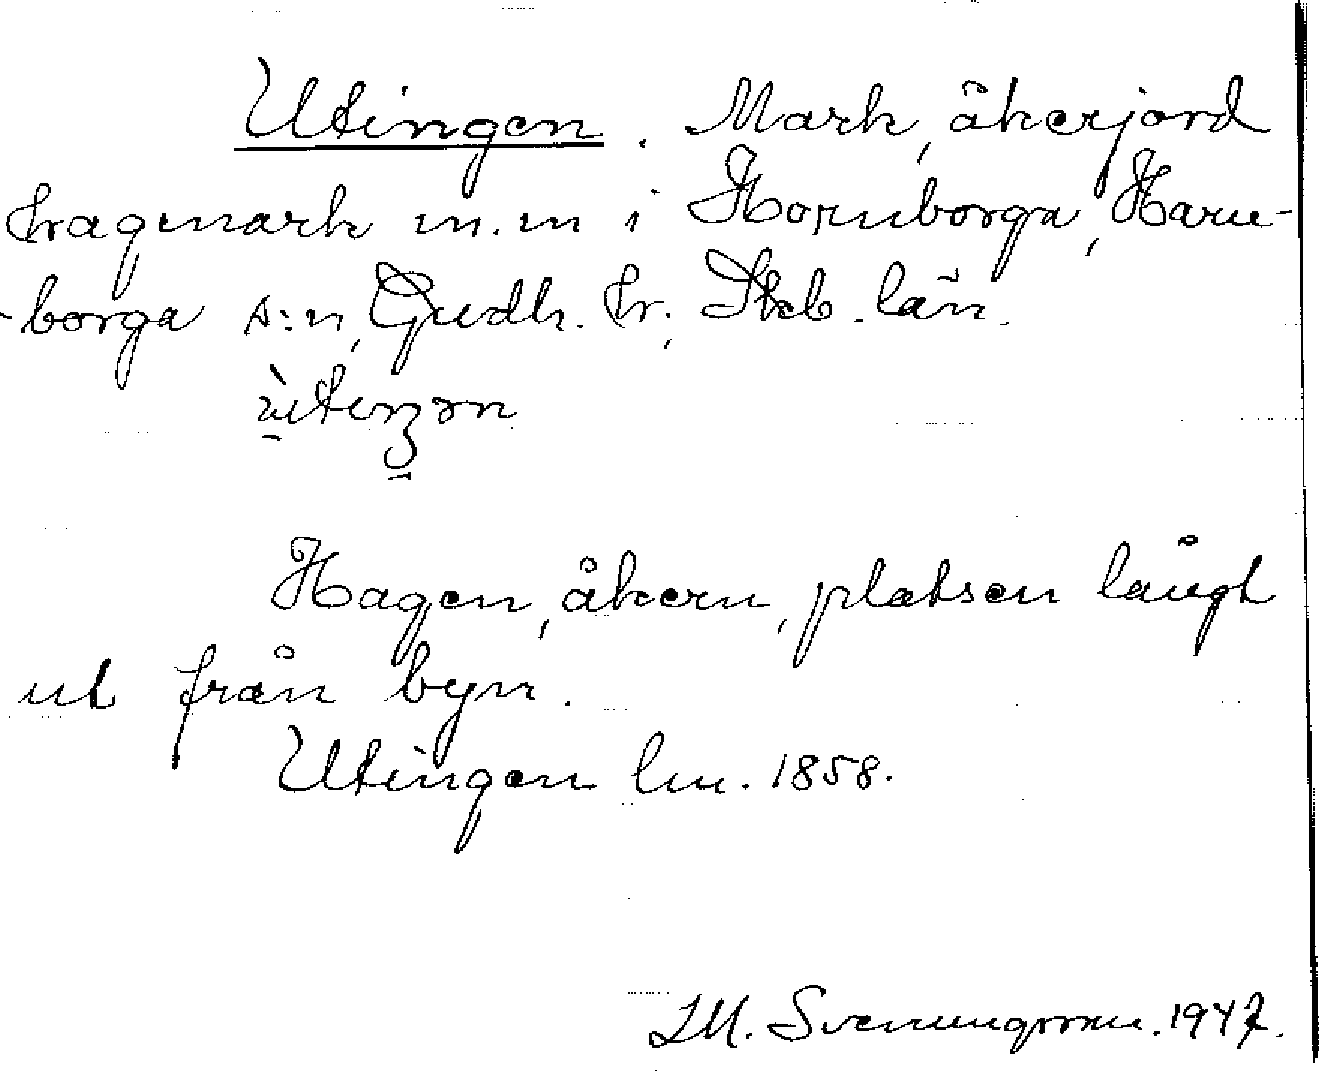 Utingen. Mark, åkerjord
hagmark m.m i Hornborga, Horn-
-borga s:n, Gudh. hr., Skb. län.

Hagen, åkern, platsen långt
ut från byn.
Utingen lm. 1858.
S.M. Svenungsson. 1947.